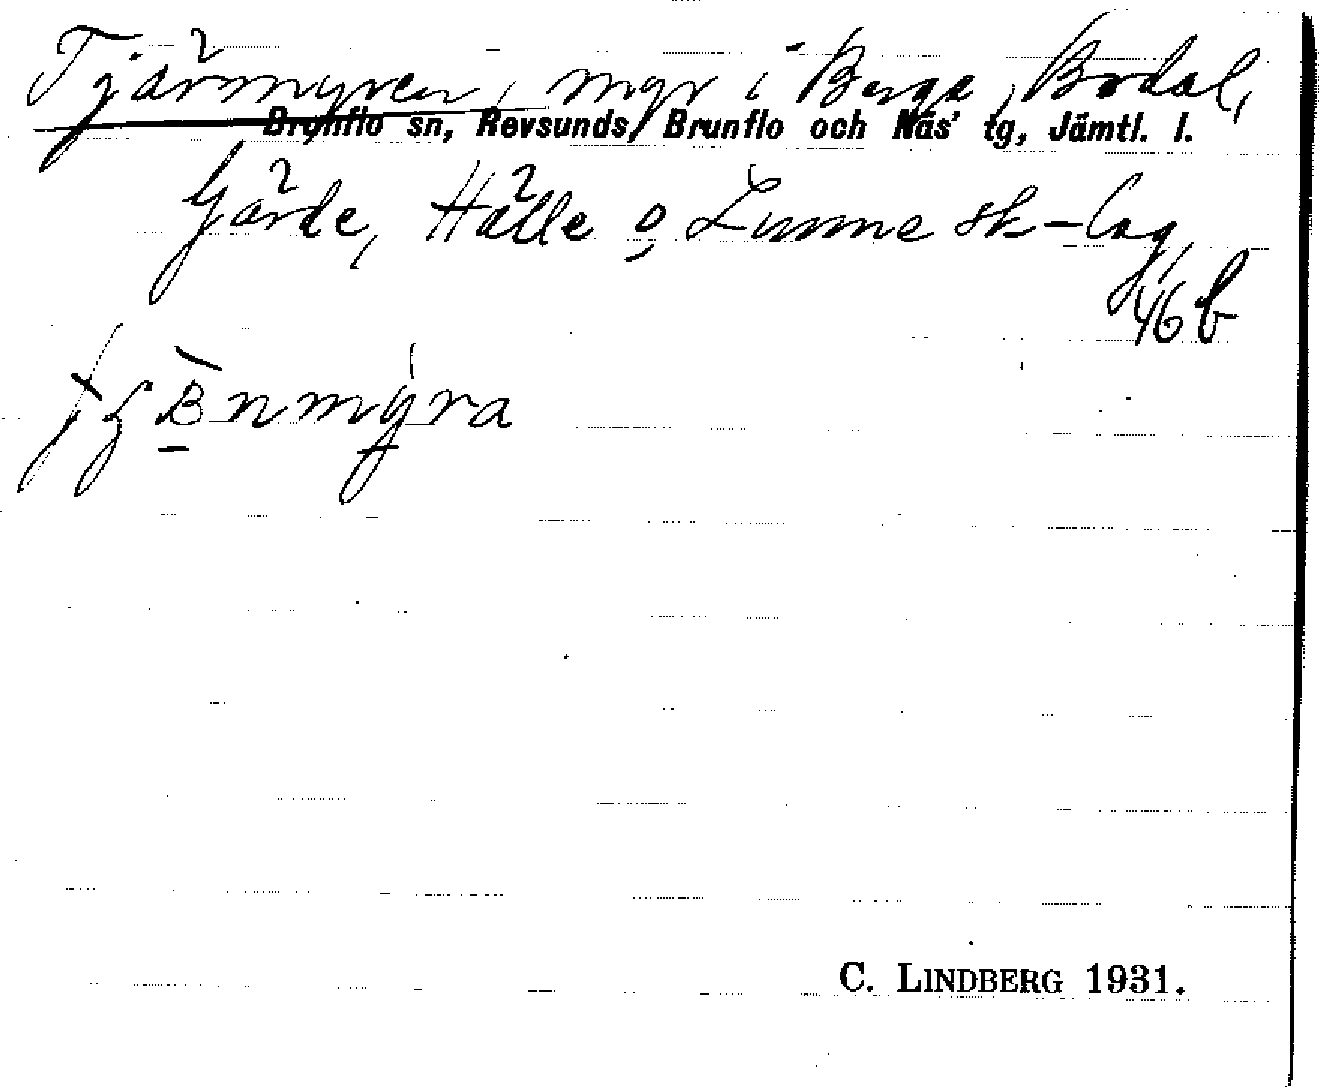 Tjärmyren, myr i Berge, Bodal,
Brunflo sn, Revsunds, Brunflo och Näs' tg, Jämtl. l.
Gärde, Hälle o Lunne sk-lag,
46 b
C. LINDBERG 1931.